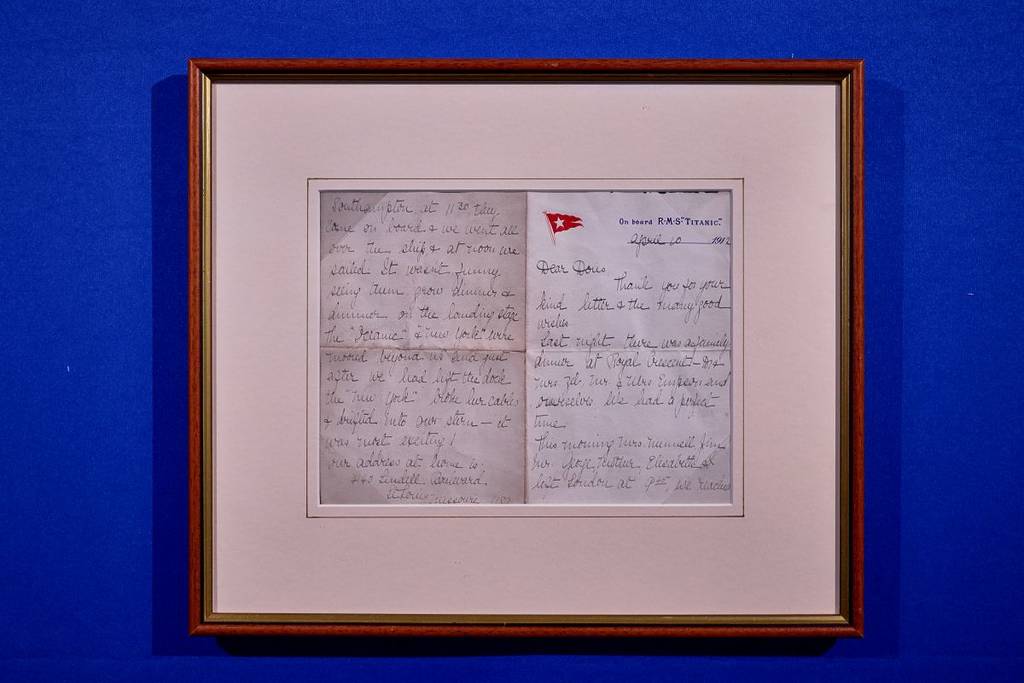 On board R·M·S· "TITANIC."
April 10 1912
Dear Doris
Thank you for your
kind letter & the many good
wishes
Last night there was a family
dinner at Royal Crescent—
Mrs. Mr. & Mrs. Simpson and
ourselves. We had a perfect
time.
This morning Mrs. 
Mr. George Elisabeth &
left London at 9 we reached
Southampton at 11³⁰ they
came on board & we went all
over the ship & at noon we
sailed. It wasn't funny
seeing them grow dimmer &
dimmer on the landing stage
The "Oceanic" & "New York" were
moored beyond us and just
after we had left the dock
the "New York" broke her cables
& drifted into our stern — it
was most exciting!
our address at home is
Lindell Boulevard
St Louis Missouri